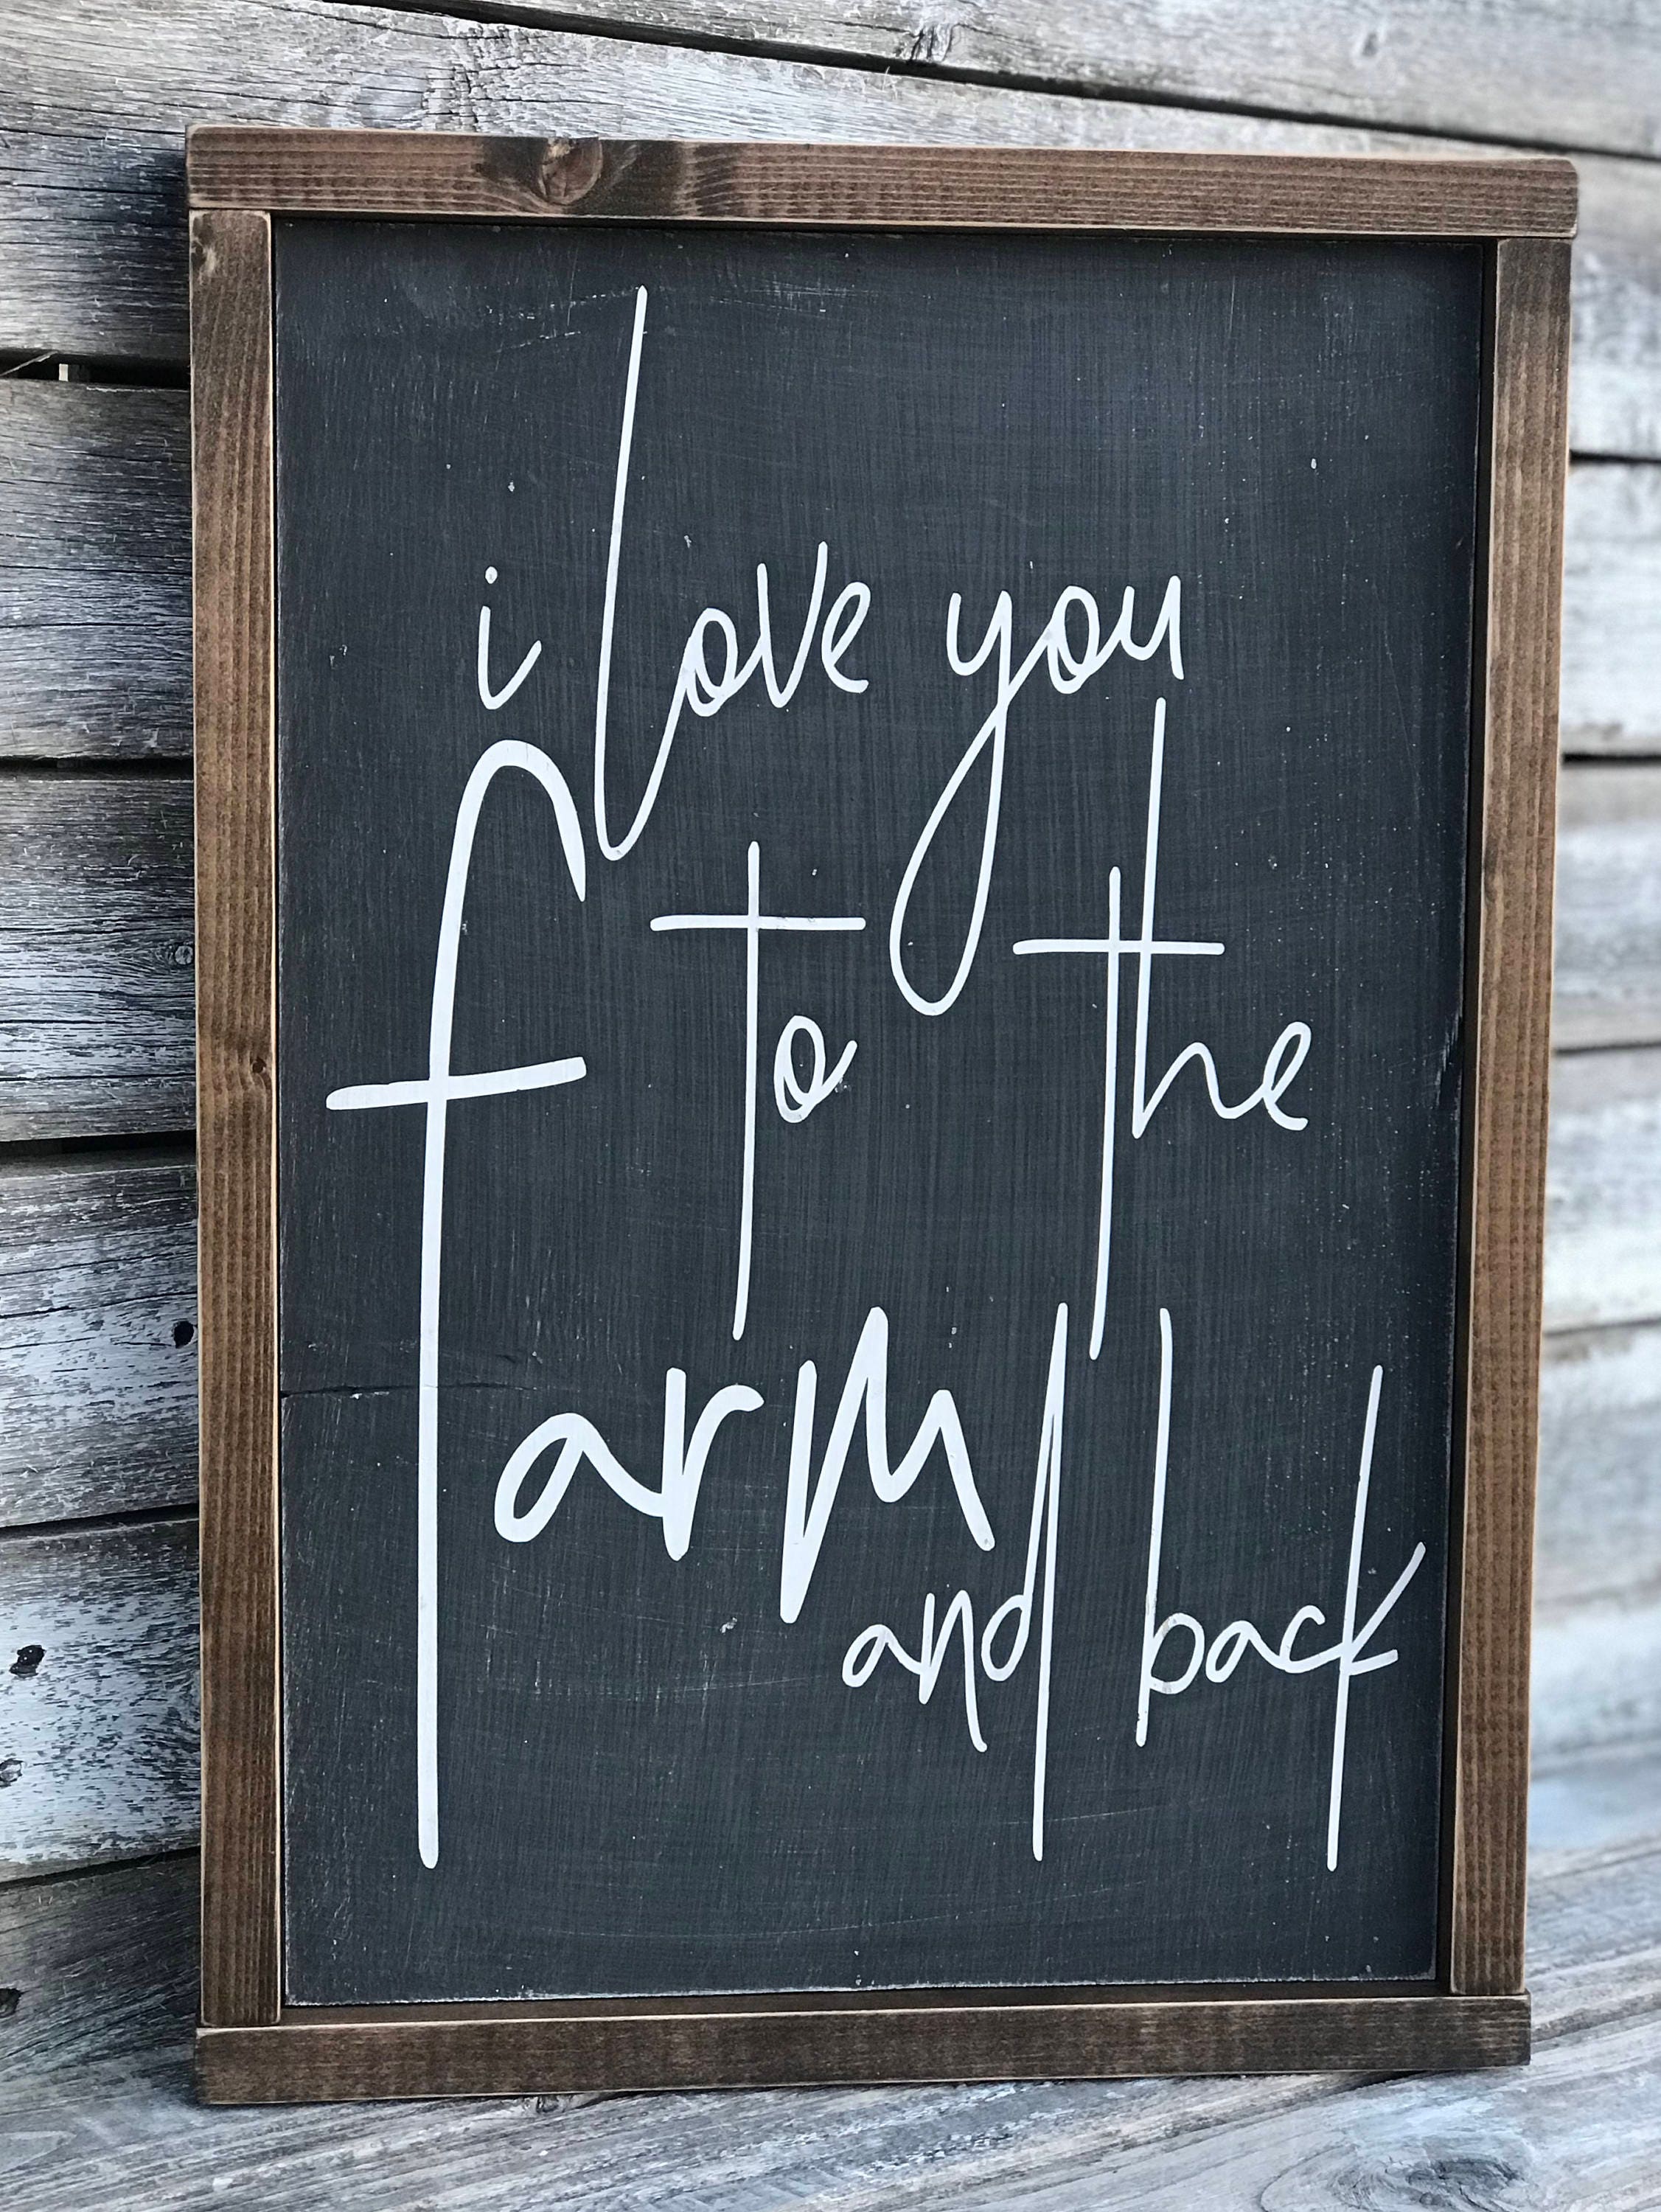 i love you
to the
farm
and back